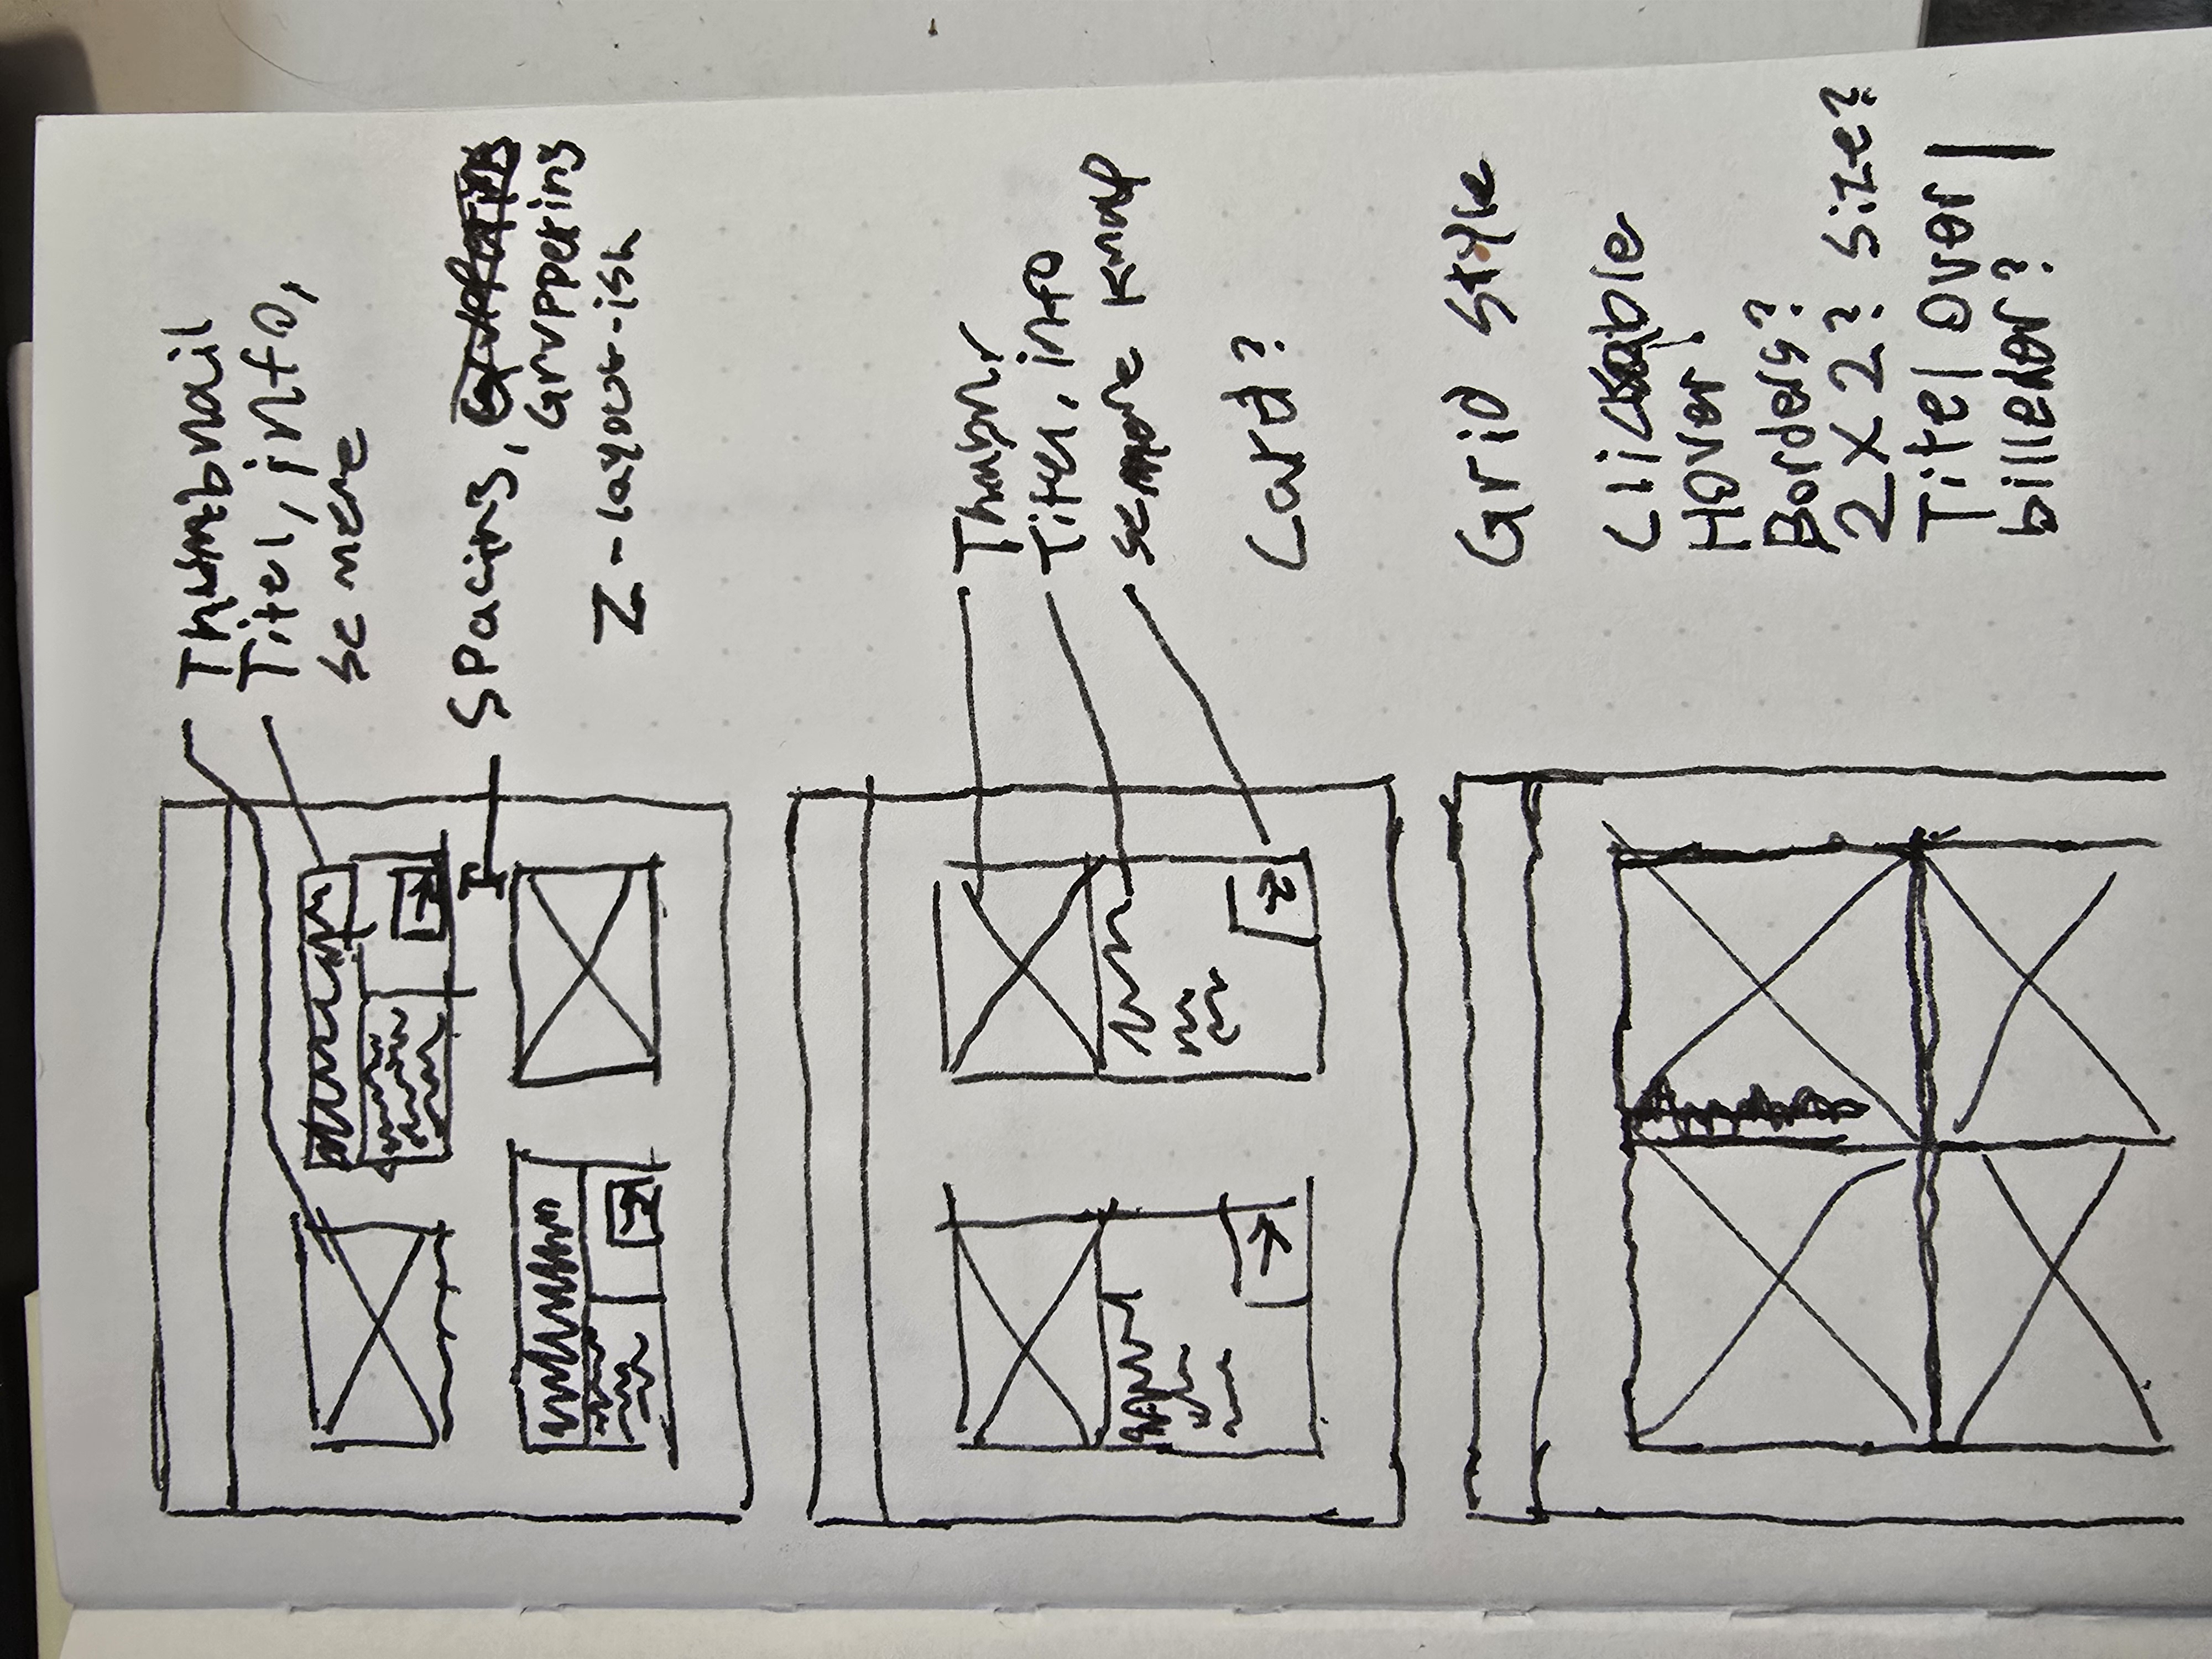 Thumbnail
Titel, info,
se mere
Spacing,
Gruppering
Z-layout-ish
Titel, info
se mere knap
Card?
Grid style
Clickable
Hover!
Borders?
2x2? Size?
Titel over
billeder?